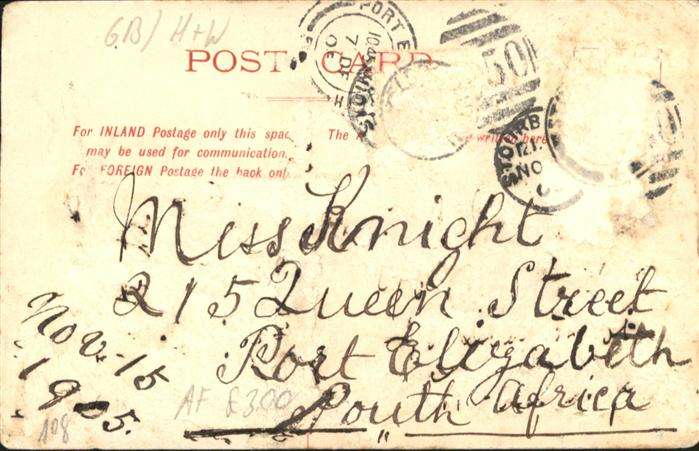 GB/ H+W
POST CARD
PORT E
10.45
7 DE
05
50
STOURB
NO
For INLAND Postage only this spac
may be used for communication.
For FOREIGN Postage the back onl
The
written here
Miss Knight
215 Queen Street
Port Elizabeth
South Africa
Nov. 15
1905.
AF £3.00
108